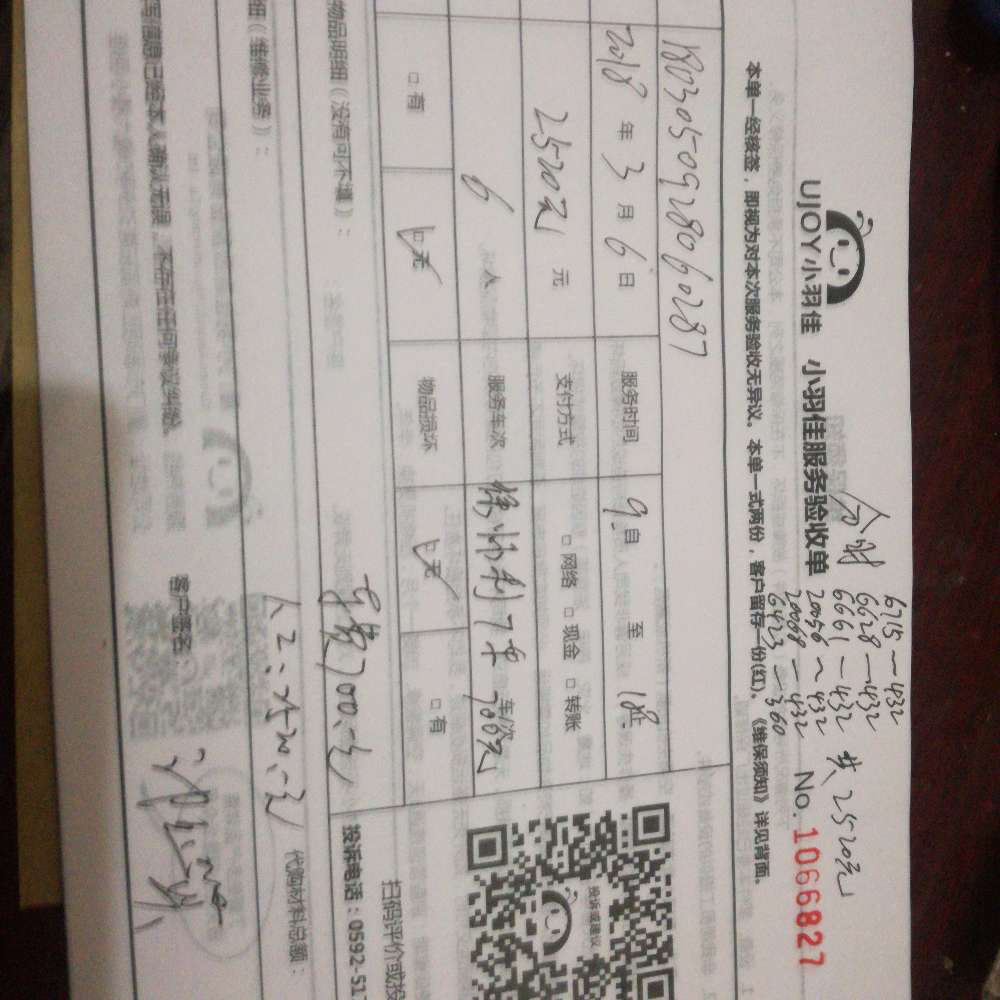 UJOY小羽佳 小羽佳服务验收单 No. 1066827
6715 — 432
6628 — 432
6661 — 432
20056 — 432
20008 — 432
6423 — 360
共 2520元
本单一经核签，即视为对本次服务验收无异议。本单一式两份，客户留存一份(红)。《维保须知》详见背面。
1803050928060287
2018 年 3 月 6 日 服务时间 9 自 至 18
2520元 元 支付方式 □ 网络 □ 现金 □ 转账
6 人 服务车次 700元 车/次
□ 有 □ 无 物品损坏 □ 无 □ 有
物品明细（没有可不填）：
车费700元
细（维修业务）：
人工：2520元
代购材料总额：
写信息已经本人确认无误，不存在任何争议纠纷。 客户签名：
投诉或建议
扫码评价或投
投诉电话：0592-517